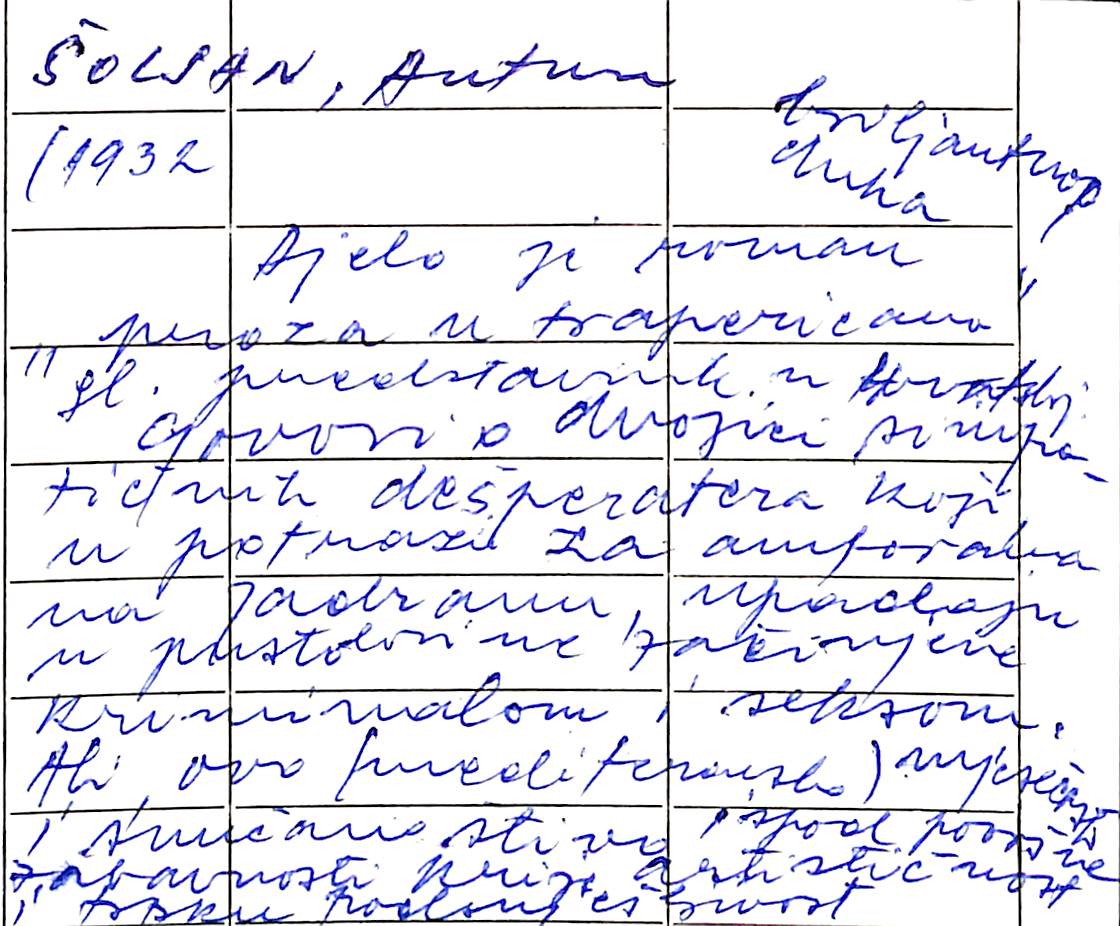 ŠOLJAN, Antun
(1932
briljantnog
duha
Djelo je roman
"proza u trapericama"
gl. predstavnik u Hrvatskoj.
Govori o dvojici simpa-
tičnih dešperatera koji
u potrazi za amforama
na Jadranu, upadaju
u pustolovine začinjene
kriminalom i seksom.
Ali, ovo (mediteransko)
i sunčano štivo ispod površne
zabavnosti krije artističnost
i